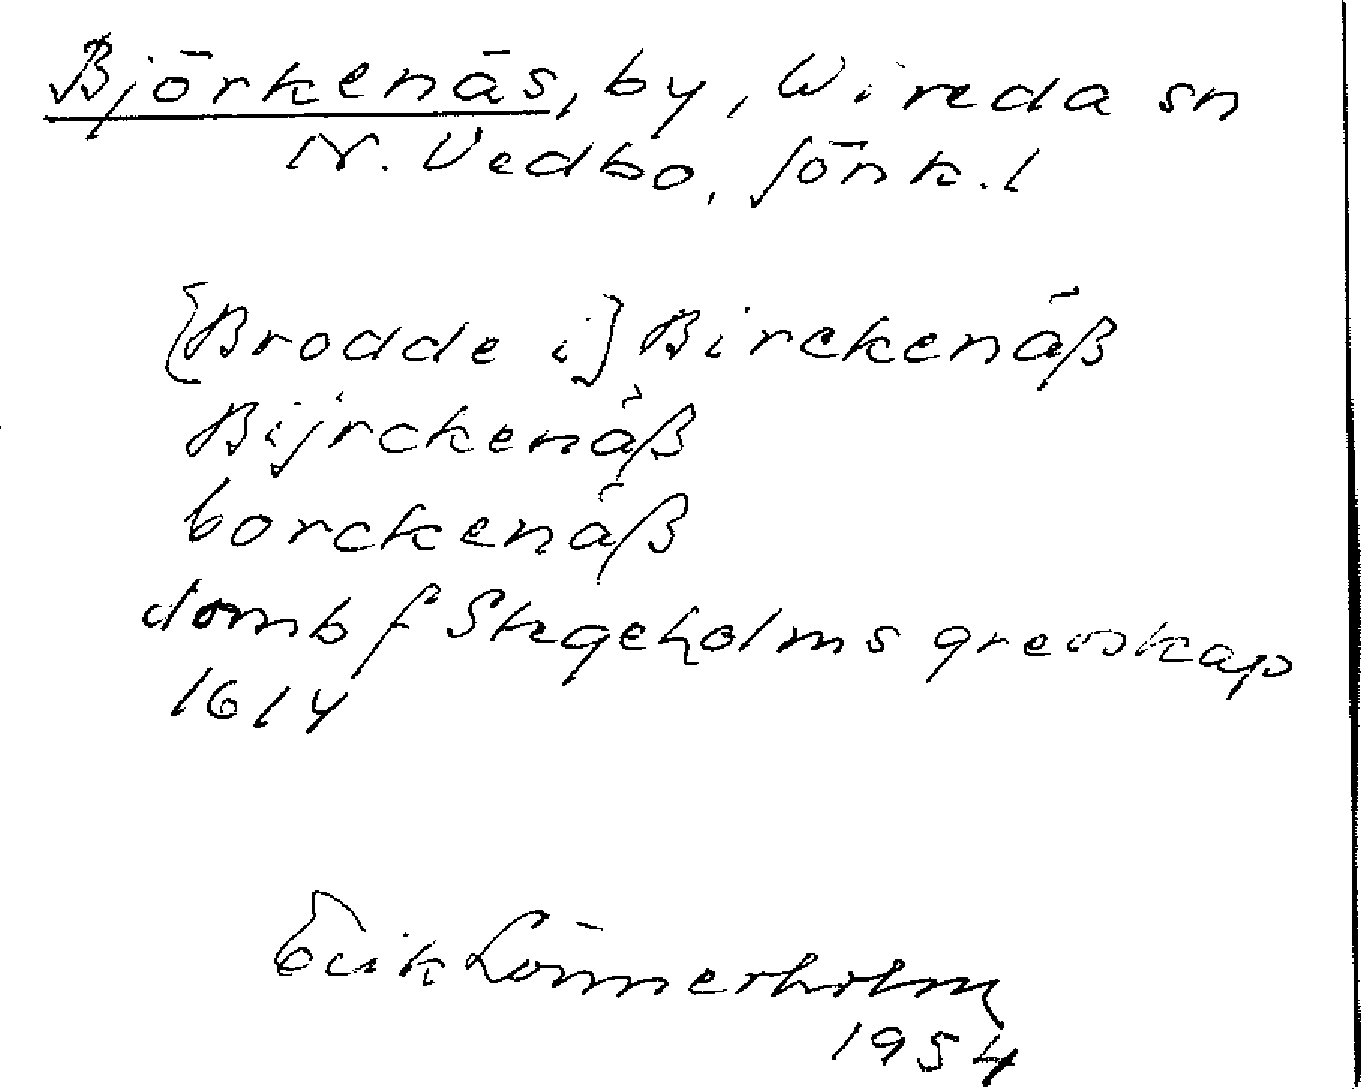 Björkenäs, by, Wireda sn
N. Vedbo, Jönk. l
[Brodde i] Birckenäß
Bijrckenäß
borckenäß
domb f Stegeholms grevskap
1614
Erik Lönnerholm
1954